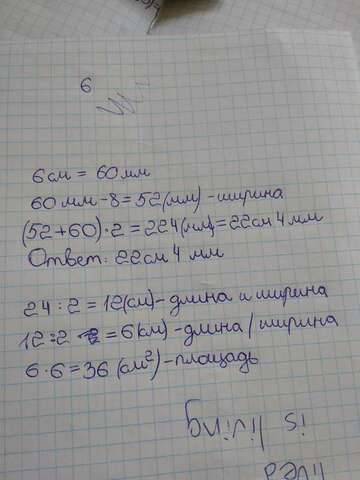 6
6см = 60мм
60мм-8=52(мм)-ширина
(52+60)·2=224(мм)=22см 4мм
Ответ: 22см 4 мм
24:2=12(см)-длина и ширина
12:2 =6(см)-длина/ширина
6·6=36(см²)-площадь
is living